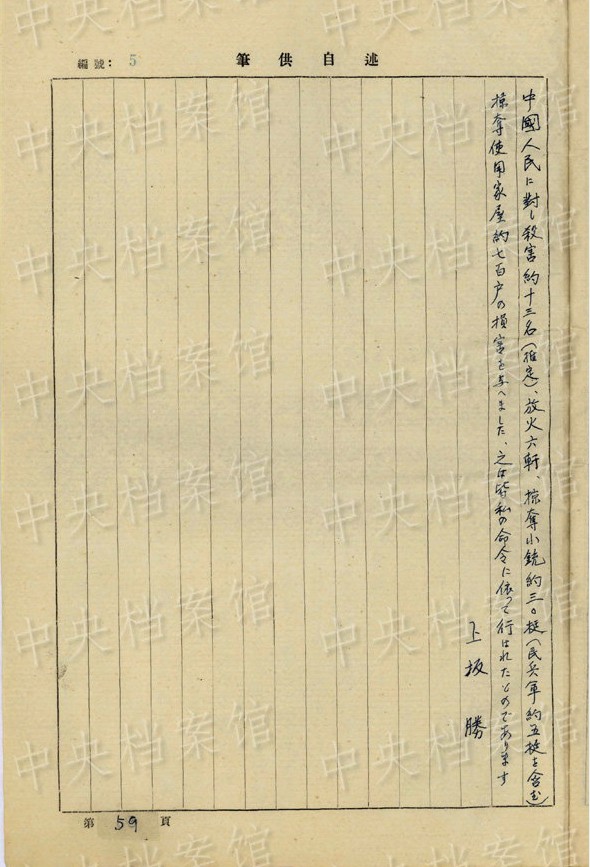 編號: 5
筆供自述
中國人民に對し殺害約十三名(推定)、放火六軒、掠奪小銃約三〇挺(民兵軍約五挺を含む)
掠奪使用家屋約七百戸の損害を与へました、之は皆私の命令に依って行はれたものであります
上坂 勝
第 59 頁
中央档案馆